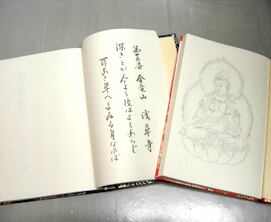 第十三番 金竜山 浅草寺
深きとが今より後はよもあらじ
罪あさ草へまゐる身なれば